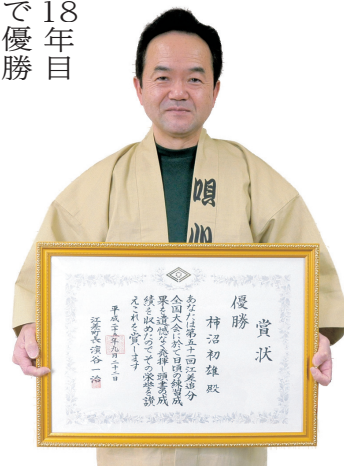 18年目
で優勝
唄
賞状
優勝
柿沼初雄殿
あなたは第五十一回江差追分
全国大会に於て日頃の練習成
果を遺憾なく発揮し頭書の成
績を収めたのでその栄誉を讃
えこれを賞します
平成二十五年九月二十二日
江差町長濱谷一治